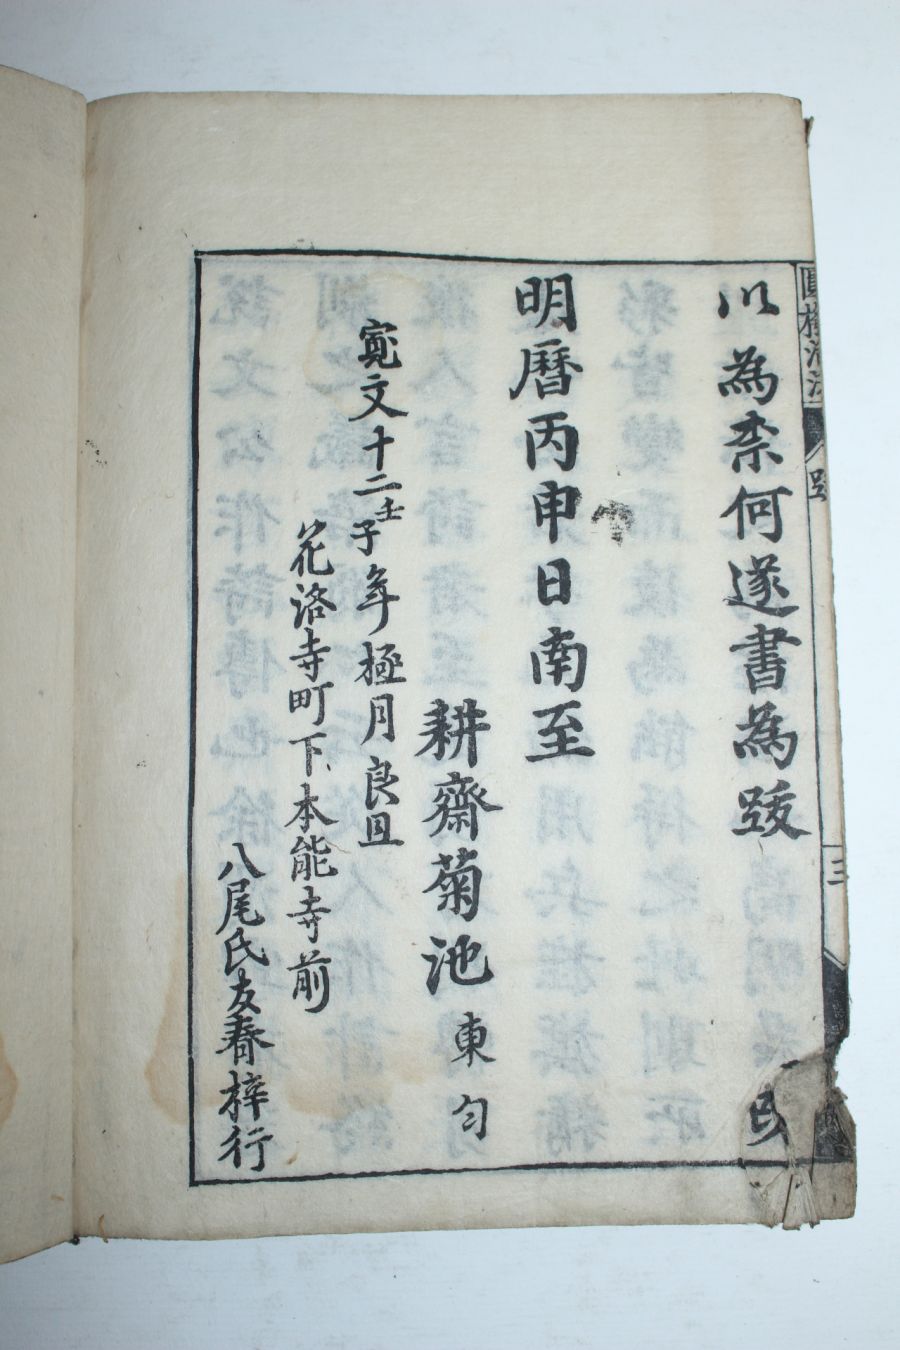 以為柰何遂書為跋
明曆丙申日南至
耕齋菊池東匀
寛文十二壬子年極月良旦
花洛寺町下本能寺前
八尾氏友春梓行
圓機活法
跋
三